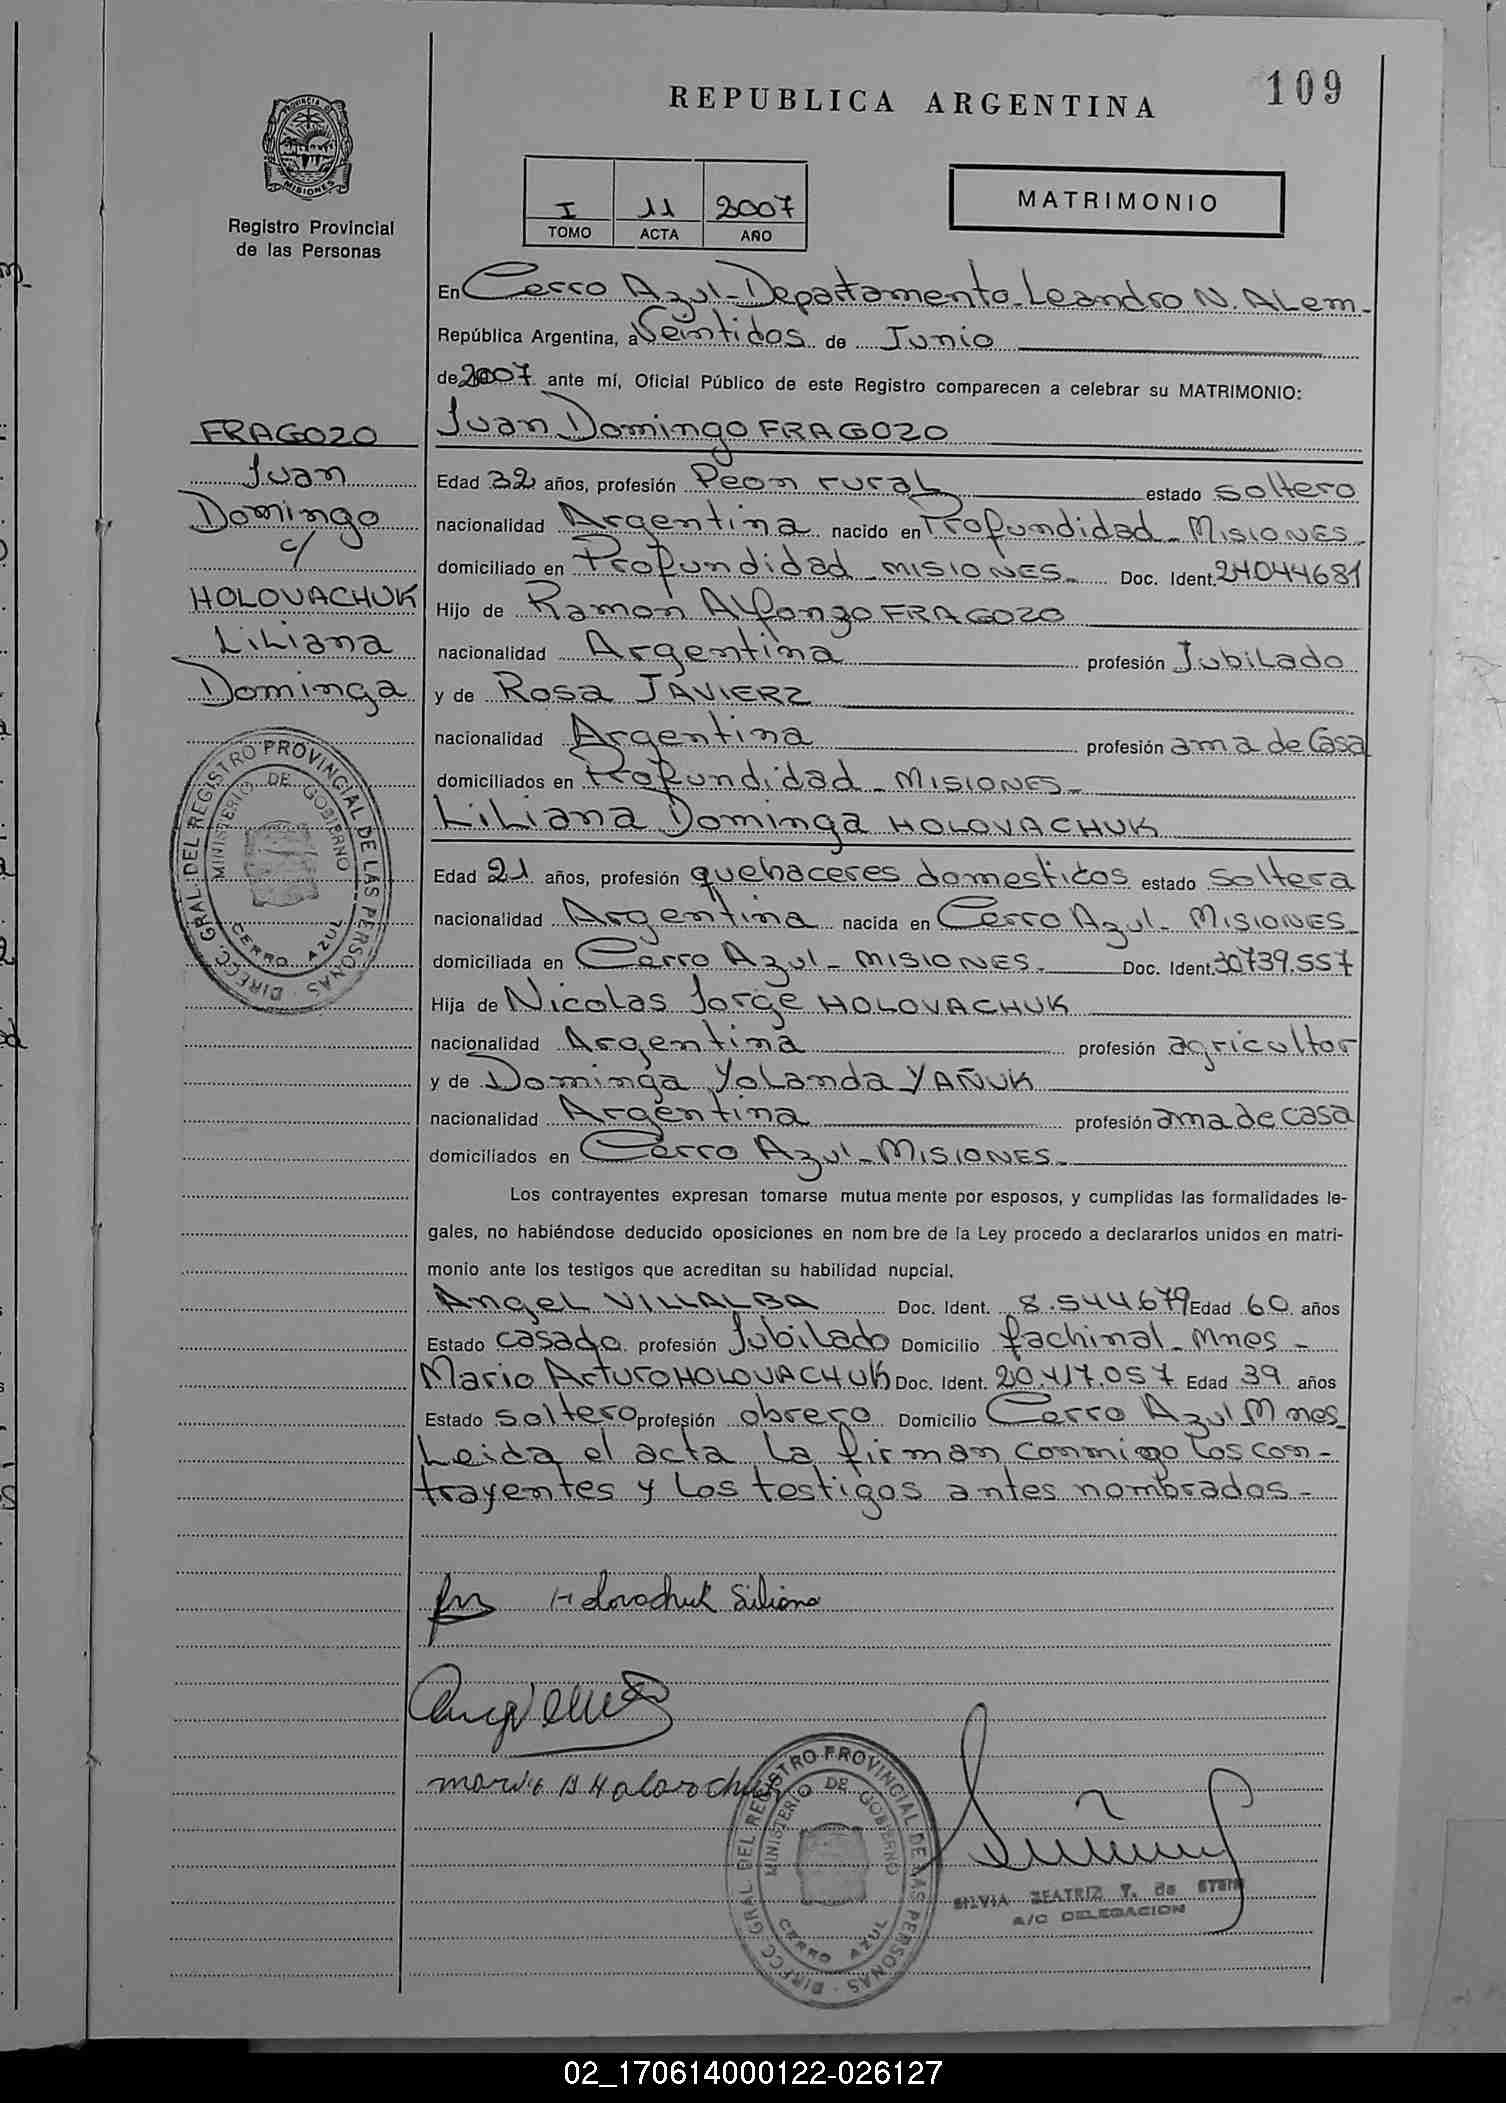 REPUBLICA ARGENTINA
109
PROVINCIA DE
MISIONES
Registro Provincial
de las Personas
I 11 2007
TOMO ACTA AÑO
MATRIMONIO
En Cerro Azul-Departamento-Leandro N. ALem-
República Argentina, a Veintidos de Junio
de 2007 ante mí, Oficial Público de este Registro comparecen a celebrar su MATRIMONIO:
Juan Domingo FRAGOZO
Edad 32 años, profesión Peon rural estado soltero
nacionalidad Argentina nacido en Profundidad - MISIONES-
domiciliado en Profundidad - MISIONES- Doc. Ident. 24044681
Hijo de Ramon Alfonzo FRAGOZO
nacionalidad Argentina profesión Jubilado
y de Rosa JAVIERZ
nacionalidad Argentina profesión ama de Casa
domiciliados en Profundidad - MISIONES-
Liliana Dominga HOLOVACHUK
Edad 21 años, profesión quehaceres domesticos estado soltera
nacionalidad Argentina nacida en Cerro Azul- MISIONES
domiciliada en Cerro Azul - MISIONES- Doc. Ident. 30739.557
Hija de Nicolas Jorge HOLOVACHUK
nacionalidad Argentina profesión agricultor
y de Dominga Yolanda YAÑUK
nacionalidad Argentina profesión ama de casa
domiciliados en Cerro Azul - MISIONES-
Los contrayentes expresan tomarse mutua mente por esposos, y cumplidas las formalidades le-
gales, no habiéndose deducido oposiciones en nom bre de la Ley procedo a declararlos unidos en matri-
monio ante los testigos que acreditan su habilidad nupcial.
Angel VILLALBA Doc. Ident. 8.544679 Edad 60 años
Estado casado profesión Jubilado Domicilio fachinal - Mnes -
Mario Arturo HOLOVACHUK Doc. Ident. 20.417.057 Edad 39 años
Estado soltero profesión obrero Domicilio Cerro Azul Mnes
Leida el acta, la firman conmigo los con-
trayentes y los testigos antes nombrados-
FRAGOZO
Juan
Domingo
c/
HOLOVACHUK
Liliana
Dominga
DIRECC. GRAL. DEL REGISTRO PROVINCIAL DE LAS PERSONAS
MINISTERIO DE GOBIERNO
CERRO AZUL
Holovachuk Liliana
Mario A Holovachuk
DIRECC. GRAL. DEL REGISTRO PROVINCIAL DE LAS PERSONAS
MINISTERIO DE GOBIERNO
CERRO AZUL
SILVIA BEATRIZ T. de STEIN
A/C DELEGACION
02_170614000122-026127